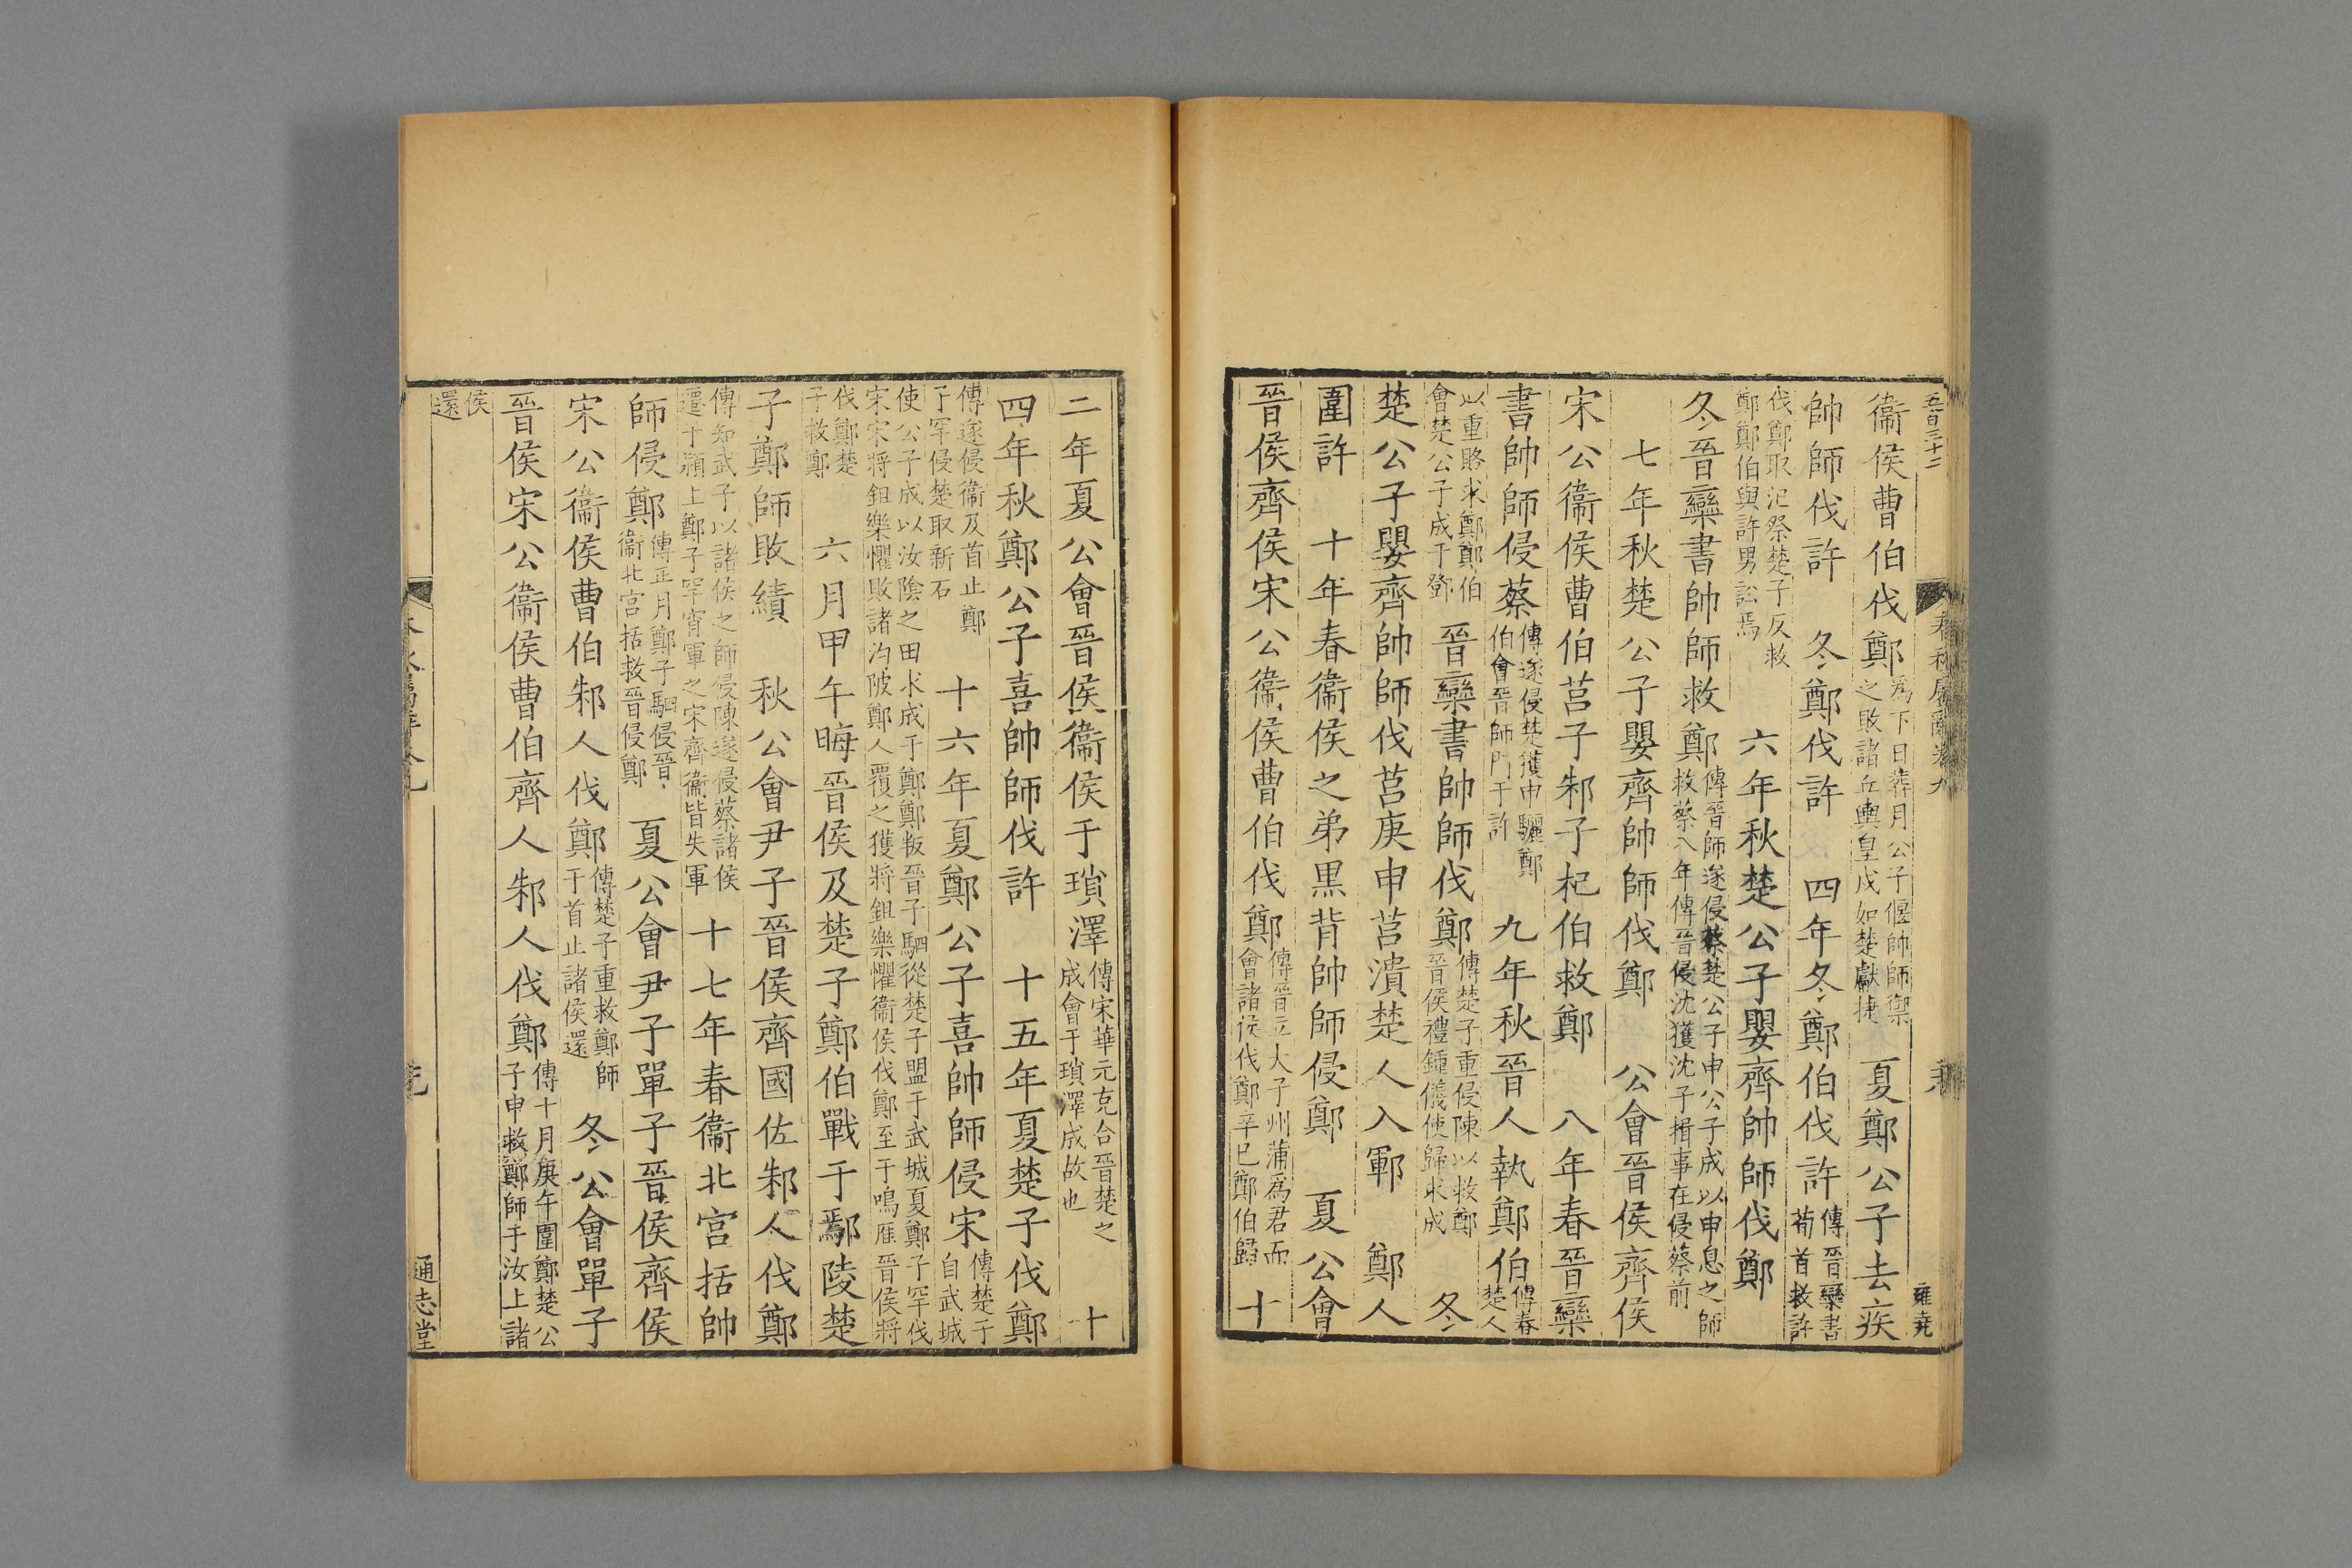 五百三十二
衞侯曹伯伐鄭爲下日葬月公子偃帥師禦之敗諸丘輿皇戌如楚獻捷　夏鄭公子去疾
帥師伐許　冬鄭伐許　四年冬鄭伯伐許傳晉欒書荀首救許
伐鄭取氾祭楚子反救鄭鄭伯與許男訟焉　六年秋楚公子嬰齊帥師伐鄭
冬晉欒書帥師救鄭傳晉師遂侵蔡楚公子申公子成以申息之師救蔡八年傳晉侵沈獲沈子揖事在侵蔡前
七年秋楚公子嬰齊帥師伐鄭　公會晉侯齊侯
宋公衞侯曹伯莒子邾子杞伯救鄭　八年春晉欒
書帥師侵蔡傳遂侵楚獲申驪鄭伯會晉師門于許　九年秋晉人執鄭伯傳春楚人
以重賂求鄭鄭伯會楚公子成于鄧　晉欒書帥師伐鄭傳楚子重侵陳以救鄭晉侯禮鍾儀使歸求成　冬
楚公子嬰齊帥師伐莒庚申莒潰楚人入鄆　鄭人
圍許　十年春衞侯之弟黑背帥師侵鄭　夏公會
晉侯齊侯宋公衞侯曹伯伐鄭傳晉立大子州蒲爲君而會諸侯伐鄭辛巳鄭伯歸　十
二年夏公會晉侯衞侯于瑣澤傳宋華元克合晉楚之成會于瑣澤成故也　十
四年秋鄭公子喜帥師伐許　十五年夏楚子伐鄭
傳遂侵衞及首止鄭子罕侵楚取新石　十六年夏鄭公子喜帥師侵宋傳楚子自武城
使公子成以汝陰之田求成于鄭鄭叛晉子駟從楚子盟于武城夏鄭子罕伐宋宋將鉏樂懼敗諸汋陂鄭人覆之獲將鉏樂懼衞侯伐鄭至于鳴雁晉侯將
伐鄭楚子救鄭　六月甲午晦晉侯及楚子鄭伯戰于鄢陵楚
子鄭師敗績　秋公會尹子晉侯齊國佐邾人伐鄭
傳知武子以諸侯之師侵陳遂侵蔡諸侯遷于潁上鄭子罕宵軍之宋齊衞皆失軍　十七年春衞北宮括帥
師侵鄭傳正月鄭子駟侵晉衞北宮括救晉侵鄭　夏公會尹子單子晉侯齊侯
宋公衞侯曹伯邾人伐鄭傳楚子重救鄭師于首止諸侯還　冬公會單子
晉侯宋公衞侯曹伯齊人邾人伐鄭傳十月庚午圍鄭楚公子申救鄭師于汝上諸
侯還
通志堂